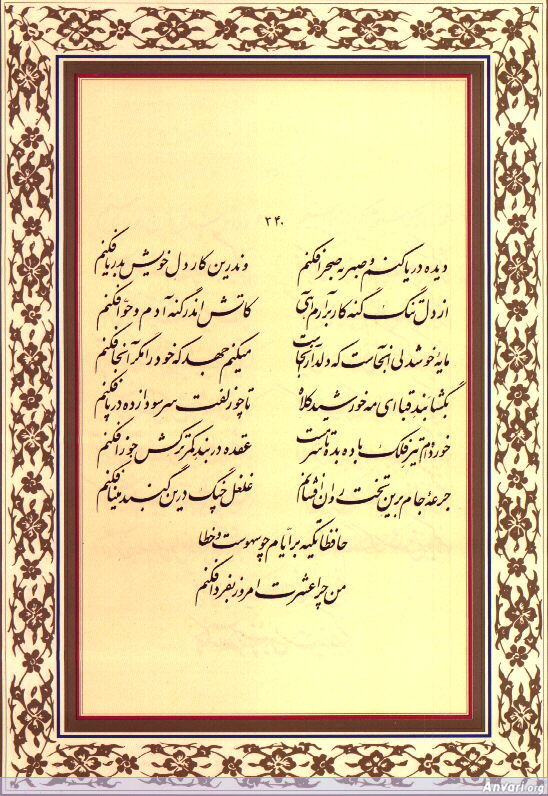 ۳۴۰
دیده دریا کنم و صبر به صحرا فکنم وندرین کار دل خویش بدریا فکنم
از دل تنگ گنه کار برآرم آهی کاتش اندر گنه آدم و حوا فکنم
مایه خوشدلی آنجاست که دلدار آنجاست میکنم جهد که خود را مگر آنجا فکنم
بگشا بند قبا ای مه خورشید کلاه تا چو زلفت سر سودازده در پا فکنم
خورده‌ام تیر فلک باده بده تا سرمست عقده در بند کمر ترکش جوزا فکنم
جرعه جام برین تخت روان افشانم غلغل چنگ درین گنبد مینا فکنم
حافظا تکیه بر ایام چو سهوست و خطا
من چرا عشرت امروز بفردا فکنم
Anvari.org